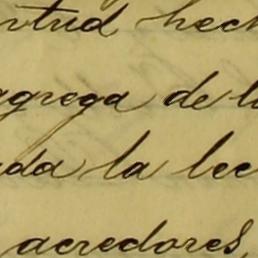 rtud hech
agrega de l
ada la lec
acredores,